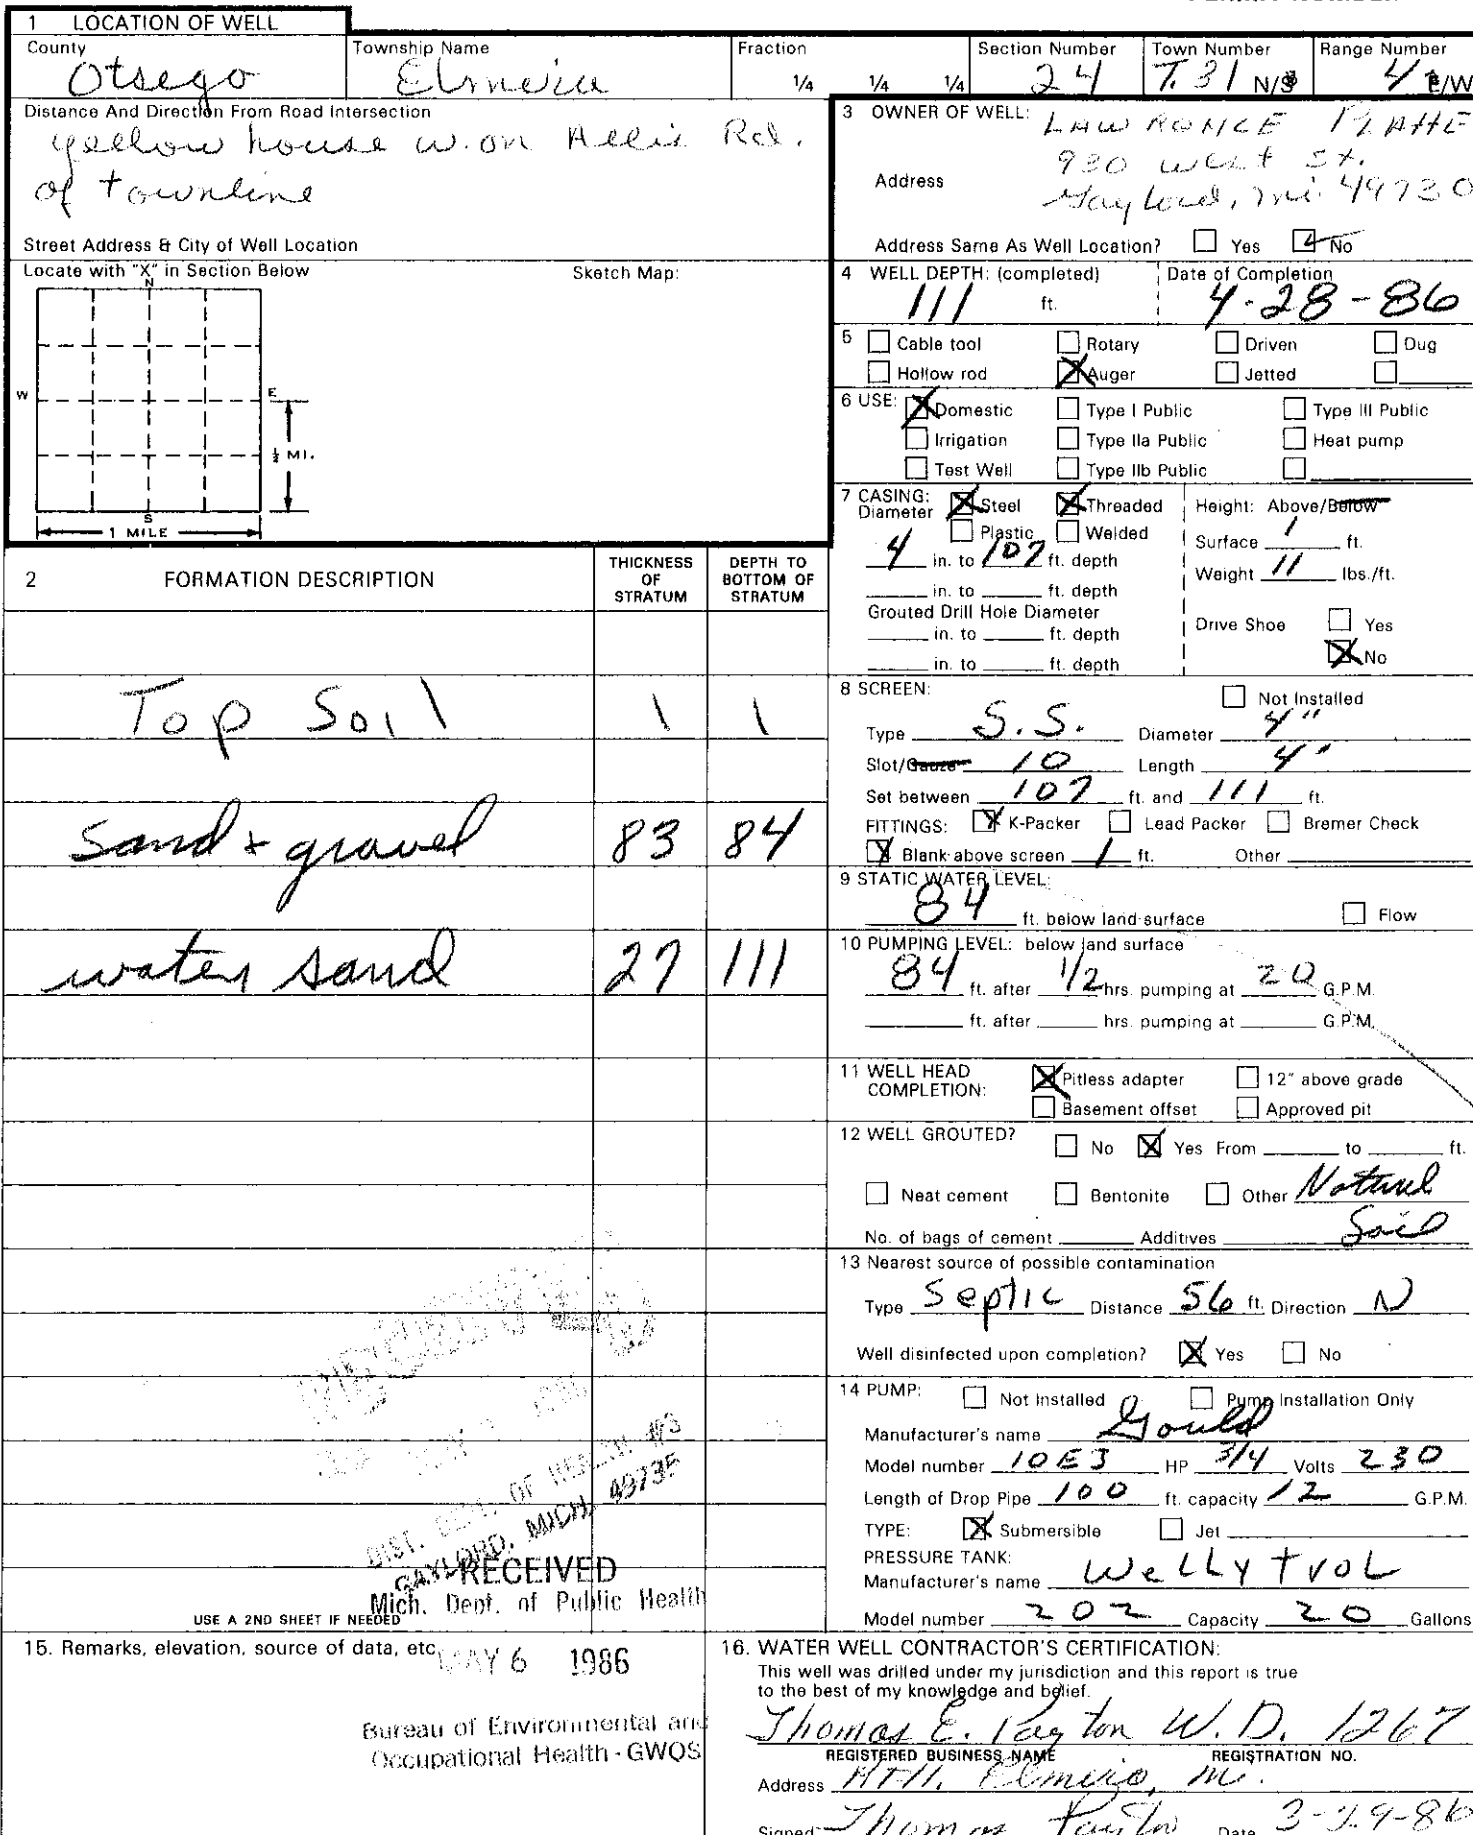 1 LOCATION OF WELL
County Township Name Fraction Section Number Town Number Range Number
Otsego Elmira 1/4 1/4 1/4 24 T.31 N/S 4 E/W
Distance And Direction From Road Intersection
yellow house w. on Allis Rd.
of townline
Street Address & City of Well Location
Locate with "X" in Section Below Sketch Map:
N
W E
½ MI.
S
1 MILE
3 OWNER OF WELL: LAWRENCE
930 West St.
Address
Gaylord, Mi. 49730
Address Same As Well Location? Yes No
4 WELL DEPTH: (completed) Date of Completion
111 ft. 4-28-86
5 Cable tool Rotary Driven Dug
Hollow rod Auger Jetted
6 USE: Domestic Type I Public Type III Public
Irrigation Type IIa Public Heat pump
Test Well Type IIb Public
7 CASING: Steel Threaded Height: Above/Below
Diameter Plastic Welded Surface 1 ft.
4 in. to 107 ft. depth Weight 11 lbs./ft.
in. to ft. depth
Grouted Drill Hole Diameter Drive Shoe Yes
in. to ft. depth No
in. to ft. depth
2 FORMATION DESCRIPTION THICKNESS OF STRATUM DEPTH TO BOTTOM OF STRATUM
Top Soil 1 1
Sand + gravel 83 84
water sand 27 111
8 SCREEN: Not Installed
Type S.S. Diameter 4"
Slot/Gauze 10 Length 4'
Set between 107 ft. and 111 ft.
FITTINGS: K-Packer Lead Packer Bremer Check
Blank above screen 1 ft. Other
9 STATIC WATER LEVEL:
84 ft. below land surface Flow
10 PUMPING LEVEL: below land surface
84 ft. after 1/2 hrs. pumping at 20 G.P.M.
ft. after hrs. pumping at G.P.M.
11 WELL HEAD COMPLETION: Pitless adapter 12" above grade
Basement offset Approved pit
12 WELL GROUTED? No Yes From to ft.
Neat cement Bentonite Other Natural
No. of bags of cement Additives Soil
13 Nearest source of possible contamination
Type Septic Distance 56 ft. Direction N
Well disinfected upon completion? Yes No
14 PUMP: Not Installed Pump Installation Only
Manufacturer's name Gould
Model number 10E3 HP 3/4 Volts 230
Length of Drop Pipe 100 ft. capacity 12 G.P.M.
TYPE: Submersible Jet
PRESSURE TANK:
Manufacturer's name Wellytrol
Model number 202 Capacity 20 Gallons
DIST. DEPT. OF HEALTH #3
GAYLORD, MICH. 49735
RECEIVED
Mich. Dept. of Public Health
USE A 2ND SHEET IF NEEDED
15. Remarks, elevation, source of data, etc.
MAY 6 1986
Bureau of Environmental and
Occupational Health - GWQS
16. WATER WELL CONTRACTOR'S CERTIFICATION:
This well was drilled under my jurisdiction and this report is true
to the best of my knowledge and belief.
Thomas E. Payton W.D. 1267
REGISTERED BUSINESS NAME REGISTRATION NO.
Address Elmira, Mi.
Signed Thomas Payton Date 3-29-86